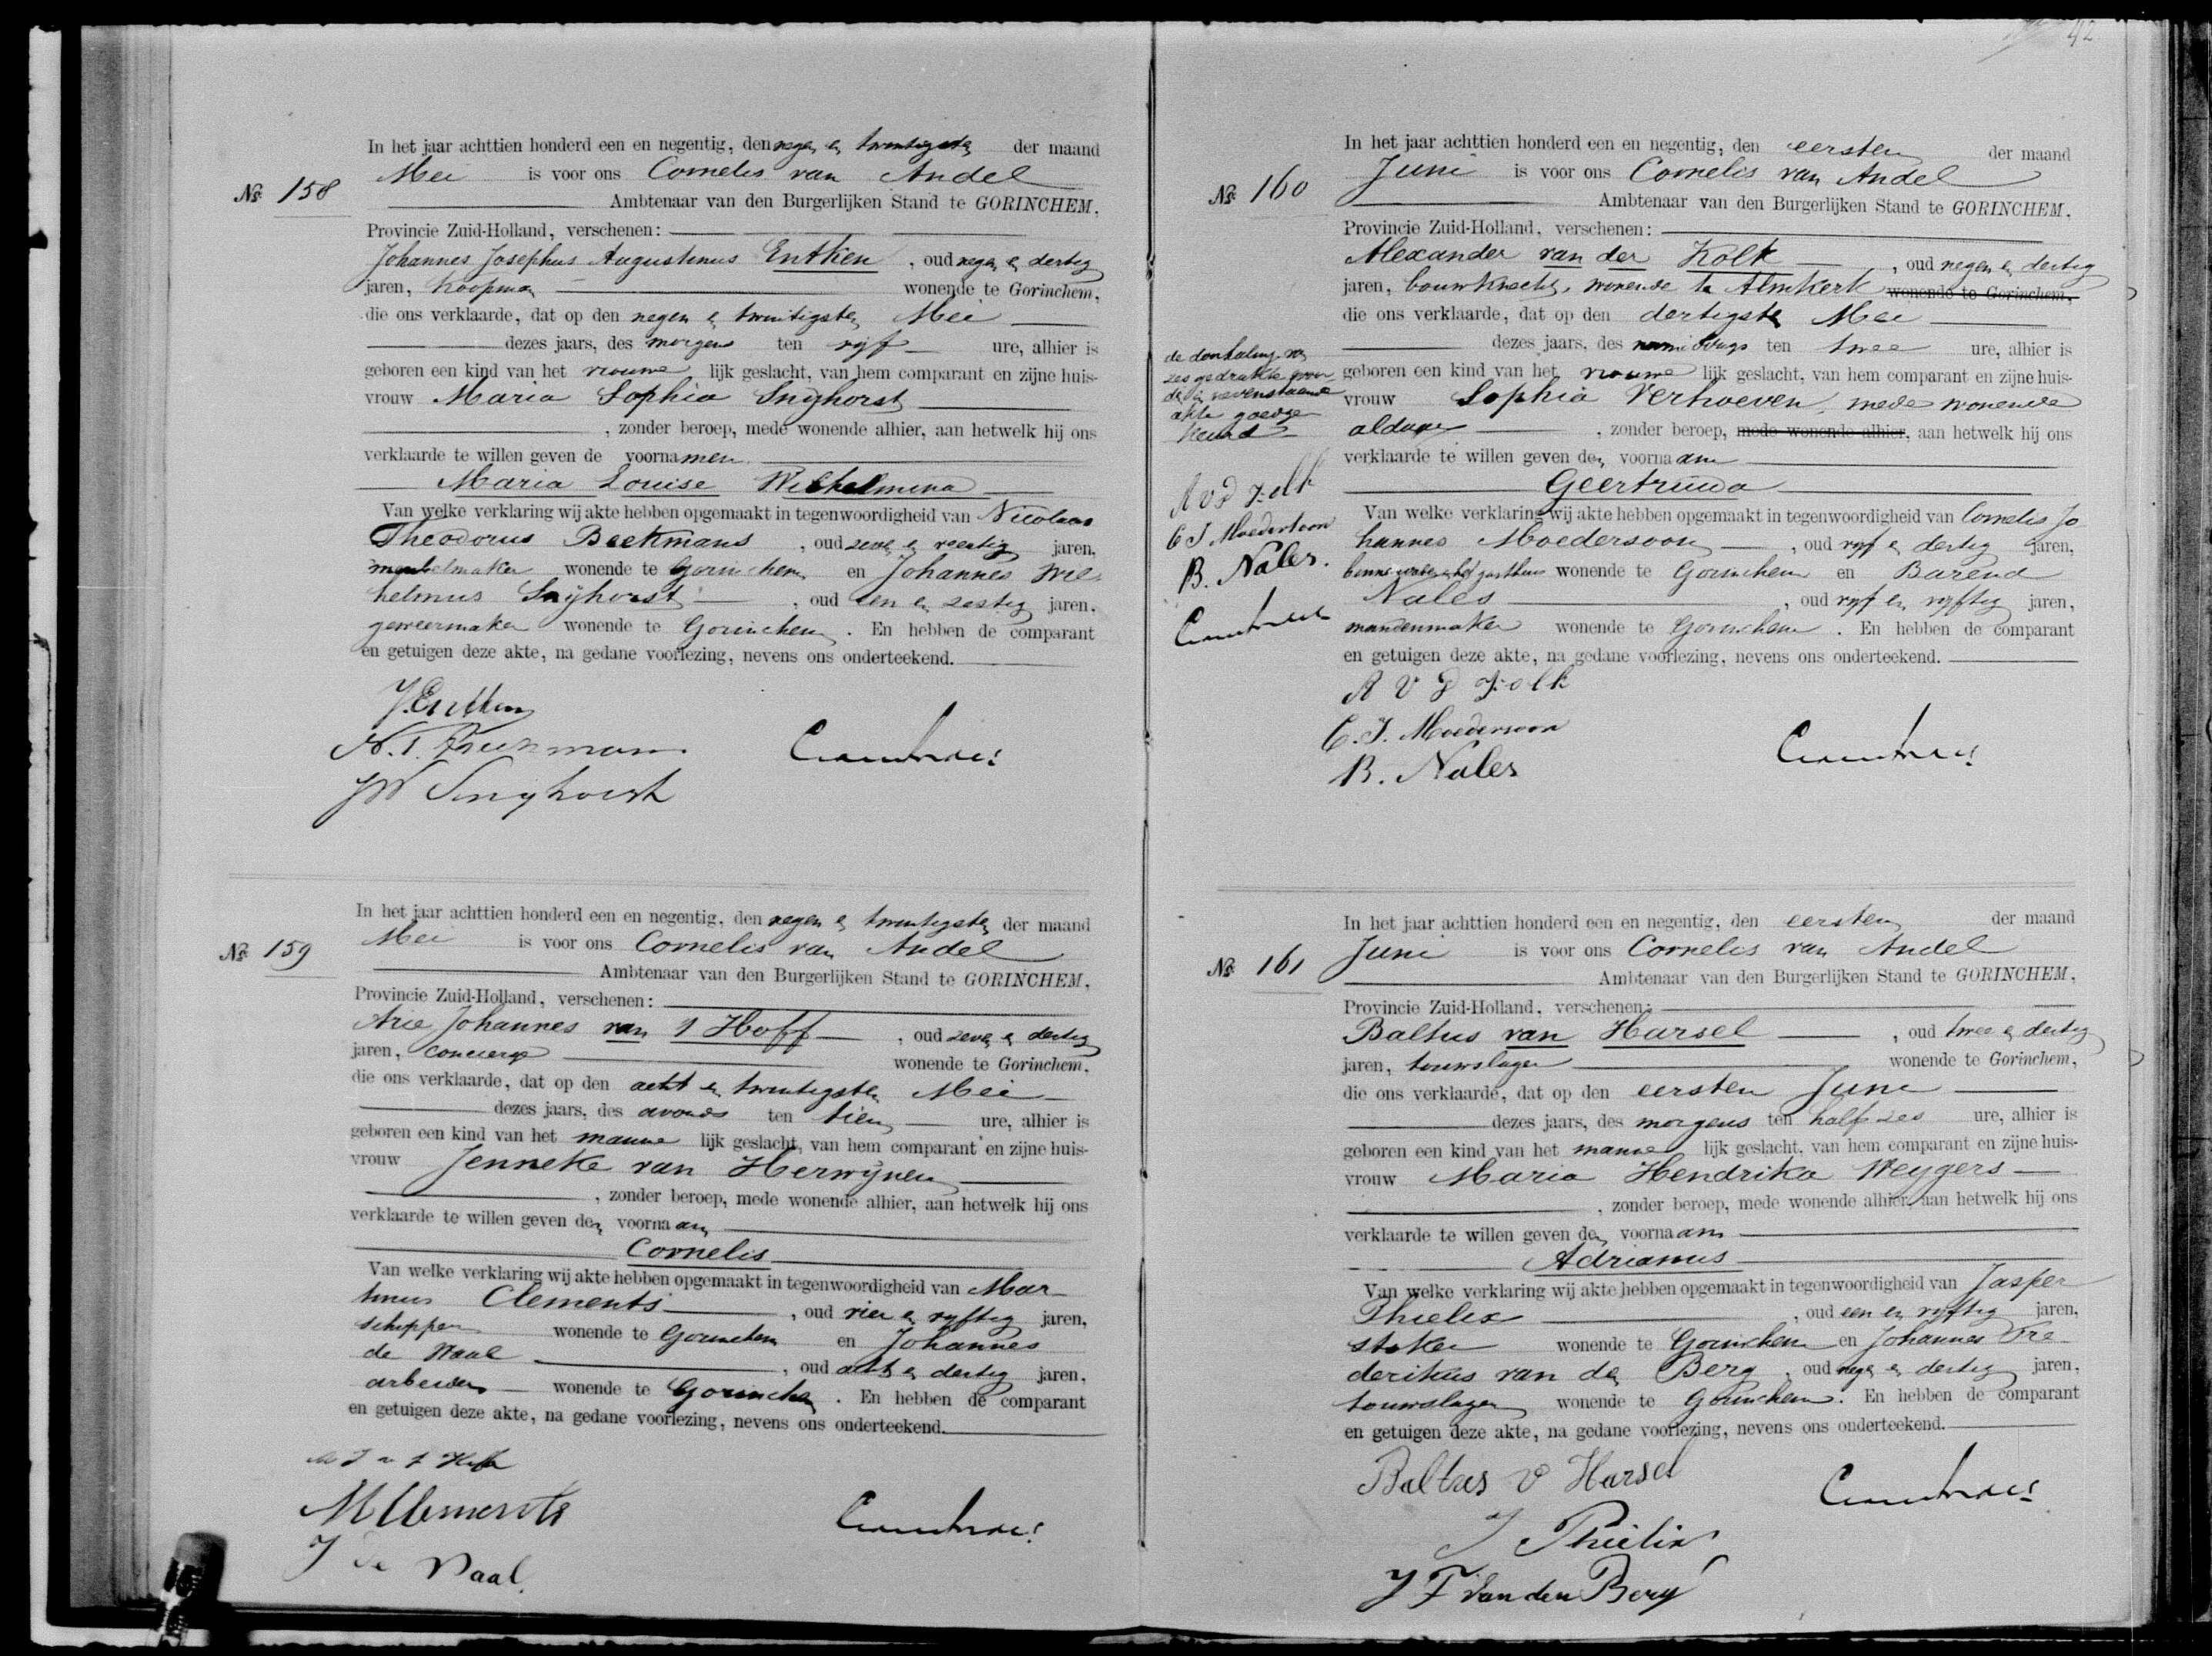 42
In het jaar achttien honderd een en negentig, den negen en twintigsten der maand
Mei is voor ons Cornelis van Andel
No. 158
Ambtenaar van den Burgerlijken Stand te GORINCHEM,
Provincie Zuid-Holland, verschenen:
Johannes Josephus Augustinus Entken, oud negen en dertig
jaren, koopman wonende te Gorinchem,
die ons verklaarde, dat op den negen en twintigsten Mei
dezes jaars, des morgens ten vijf ure, alhier is
geboren een kind van het vrouwelijk geslacht, van hem comparant en zijne huis-
vrouw Maria Sophia Snijhorst
, zonder beroep, mede wonende alhier, aan hetwelk hij ons
verklaarde te willen geven de voornamen
Maria Louise Wilhelmina
Van welke verklaring wij akte hebben opgemaakt in tegenwoordigheid van Nicolaas
Theodorus Beekmans, oud zeven en veertig jaren,
meubelmaker wonende te Gorinchem en Johannes Wil-
helmus Snijhorst, oud een en zestig jaren,
geweermaker wonende te Gorinchem. En hebben de comparant
en getuigen deze akte, na gedane voorlezing, nevens ons onderteekend.
J. Entken
N. T. Beekmans
JW Snijhorst
In het jaar achttien honderd een en negentig, den negen en twintigsten der maand
Mei is voor ons Cornelis van Andel
No. 159
Ambtenaar van den Burgerlijken Stand te GORINCHEM,
Provincie Zuid-Holland, verschenen:
Arie Johannes van 't Hoff, oud zeven en dertig
jaren, concierge wonende te Gorinchem,
die ons verklaarde, dat op den acht en twintigsten Mei
dezes jaars, des avonds ten tien ure, alhier is
geboren een kind van het mannelijk geslacht, van hem comparant en zijne huis-
vrouw Jenneke van Herwijnen
, zonder beroep, mede wonende alhier, aan hetwelk hij ons
verklaarde te willen geven den voornaam
Cornelis
Van welke verklaring wij akte hebben opgemaakt in tegenwoordigheid van Mar-
tinus Clements, oud vier en vijftig jaren,
schipper wonende te Gorinchem en Johannes
de Waal, oud acht en dertig jaren,
arbeider wonende te Gorinchem. En hebben de comparant
en getuigen deze akte, na gedane voorlezing, nevens ons onderteekend.
A J v 't Hoff
M Clements
J de Waal
In het jaar achttien honderd een en negentig, den eersten der maand
Juni is voor ons Cornelis van Andel
No. 160
Ambtenaar van den Burgerlijken Stand te GORINCHEM,
Provincie Zuid-Holland, verschenen:
Alexander van der Kolk, oud negen en dertig
jaren, bouwknecht, wonende te Almkerk wonende te Gorinchem,
die ons verklaarde, dat op den dertigsten Mei
dezes jaars, des namiddags ten twee ure, alhier is
geboren een kind van het vrouwelijk geslacht, van hem comparant en zijne huis-
vrouw Sophia Verhoeven, mede wonende
aldaar, zonder beroep, mede wonende alhier, aan hetwelk hij ons
verklaarde te willen geven den voornaam
Geertruida
Van welke verklaring wij akte hebben opgemaakt in tegenwoordigheid van Cornelis Jo-
hannes Moedersoon, oud vijf en dertig jaren,
wonende te Gorinchem en Barend
Nales, oud vijf en vijftig jaren,
mandenmaker wonende te Gorinchem. En hebben de comparant
en getuigen deze akte, na gedane voorlezing, nevens ons onderteekend.
A V D Kolk
C. J. Moedersoon
B. Nales
de doorhaling van
zes gedrukte woor-
den in nevenstaande
akte goedge-
keurd
A V D Kolk
C J Moedersoon
B. Nales.
In het jaar achttien honderd een en negentig, den eersten der maand
Juni is voor ons Cornelis van Andel
No. 161
Ambtenaar van den Burgerlijken Stand te GORINCHEM,
Provincie Zuid-Holland, verschenen:
Baltus van Harsel, oud twee en dertig
jaren, touwslager wonende te Gorinchem,
die ons verklaarde, dat op den eersten Juni
dezes jaars, des morgens ten half zes ure, alhier is
geboren een kind van het mannelijk geslacht, van hem comparant en zijne huis-
vrouw Maria Hendrika Weygers
, zonder beroep, mede wonende alhier, aan hetwelk hij ons
verklaarde te willen geven den voornaam
Adrianus
Van welke verklaring wij akte hebben opgemaakt in tegenwoordigheid van Jasper
Thielix, oud een en vijftig jaren,
stoker wonende te Gorinchem en Johannes Fre-
derikus van den Berg, oud negen en dertig jaren,
touwslager wonende te Gorinchem. En hebben de comparant
en getuigen deze akte, na gedane voorlezing, nevens ons onderteekend.
Baltus v Harsel
J Thielix
J F van den Berg